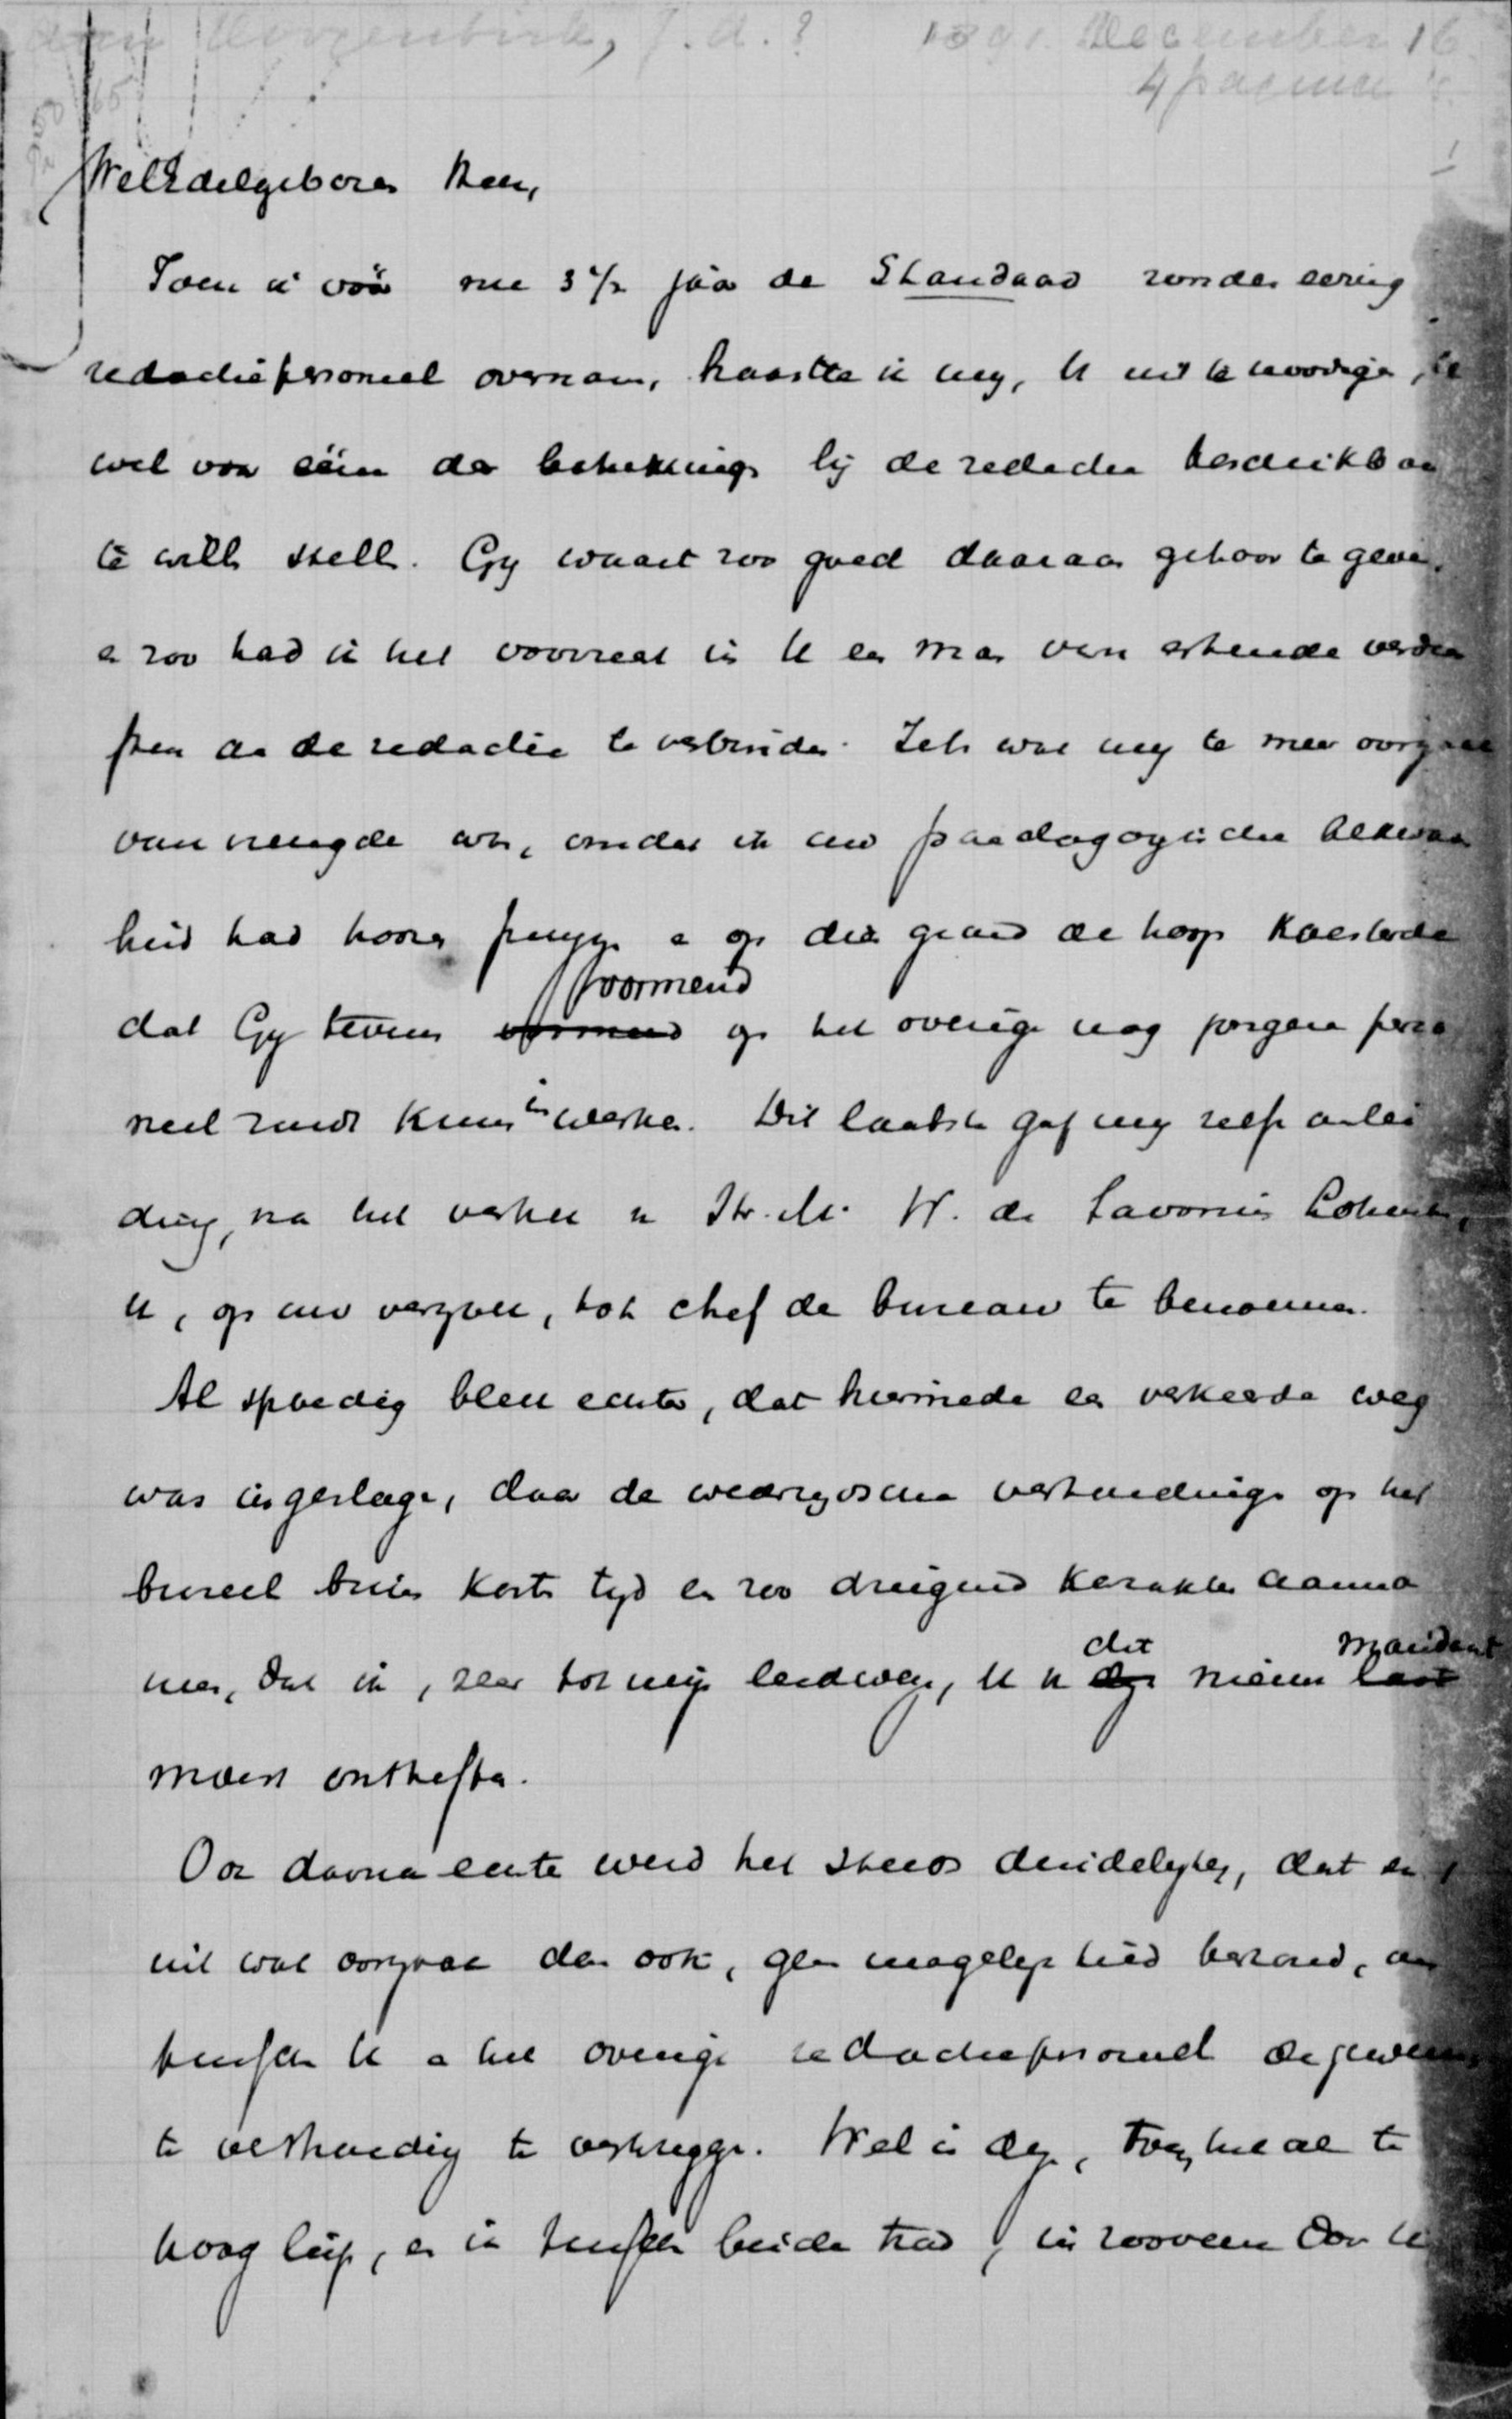 1891. December 16
4 pagina's
1
WelEdelgeboren Heer,
Toen ik vóór nu 3 1/2 jaar de Standaard zonder eenig
redactiepersoneel overnam, haastte ik mij, U uit te noodigen, U
wel voor één der betrekkingen bij de redactie beschikbaar
te willen stellen. Gij waart zoo goed daaraan gehoor te geven,
en zoo had ik het voorrecht in U een man van erkende verdien
sten aan de redactie te verbinden. Iets wat mij te meer oorzaak
van vreugde was, omdat ik uw paedagogische bekwaam
heid had hooren prijzen en op dien grond de hoop koesterde
dat Gij tevens vormend op het overige nog jongere perso
neel zoudt kunnen inwerken. Dit laatste gaf mij zelfs aanlei
ding, na het vertrek van Jhr. Mr. W. de Savornin Lohman,
U, op uw verzoek, tot chef de bureau te benoemen.
Al spoedig bleek echter, dat hiermede een verkeerde weg
was ingeslagen, daar de wederzijdsche verhoudingen op het
bureel binnen korten tijd een zoo dreigend karakter aanna
men, dat ik, zeer tot mijn leedwezen, U van dit nieuw mandaat
moest ontheffen.
Ook daarna echter werd het steeds duidelijker, dat er,
uit wat oorzaak dan ook, geen mogelijkheid bestond, om
tusschen U en het overige redactiepersoneel de gewenschte
te verhouding te verkrijgen. Wel is dan, toen het al te
hoog liep, en ik tusschen beide trad, in zooverre door U